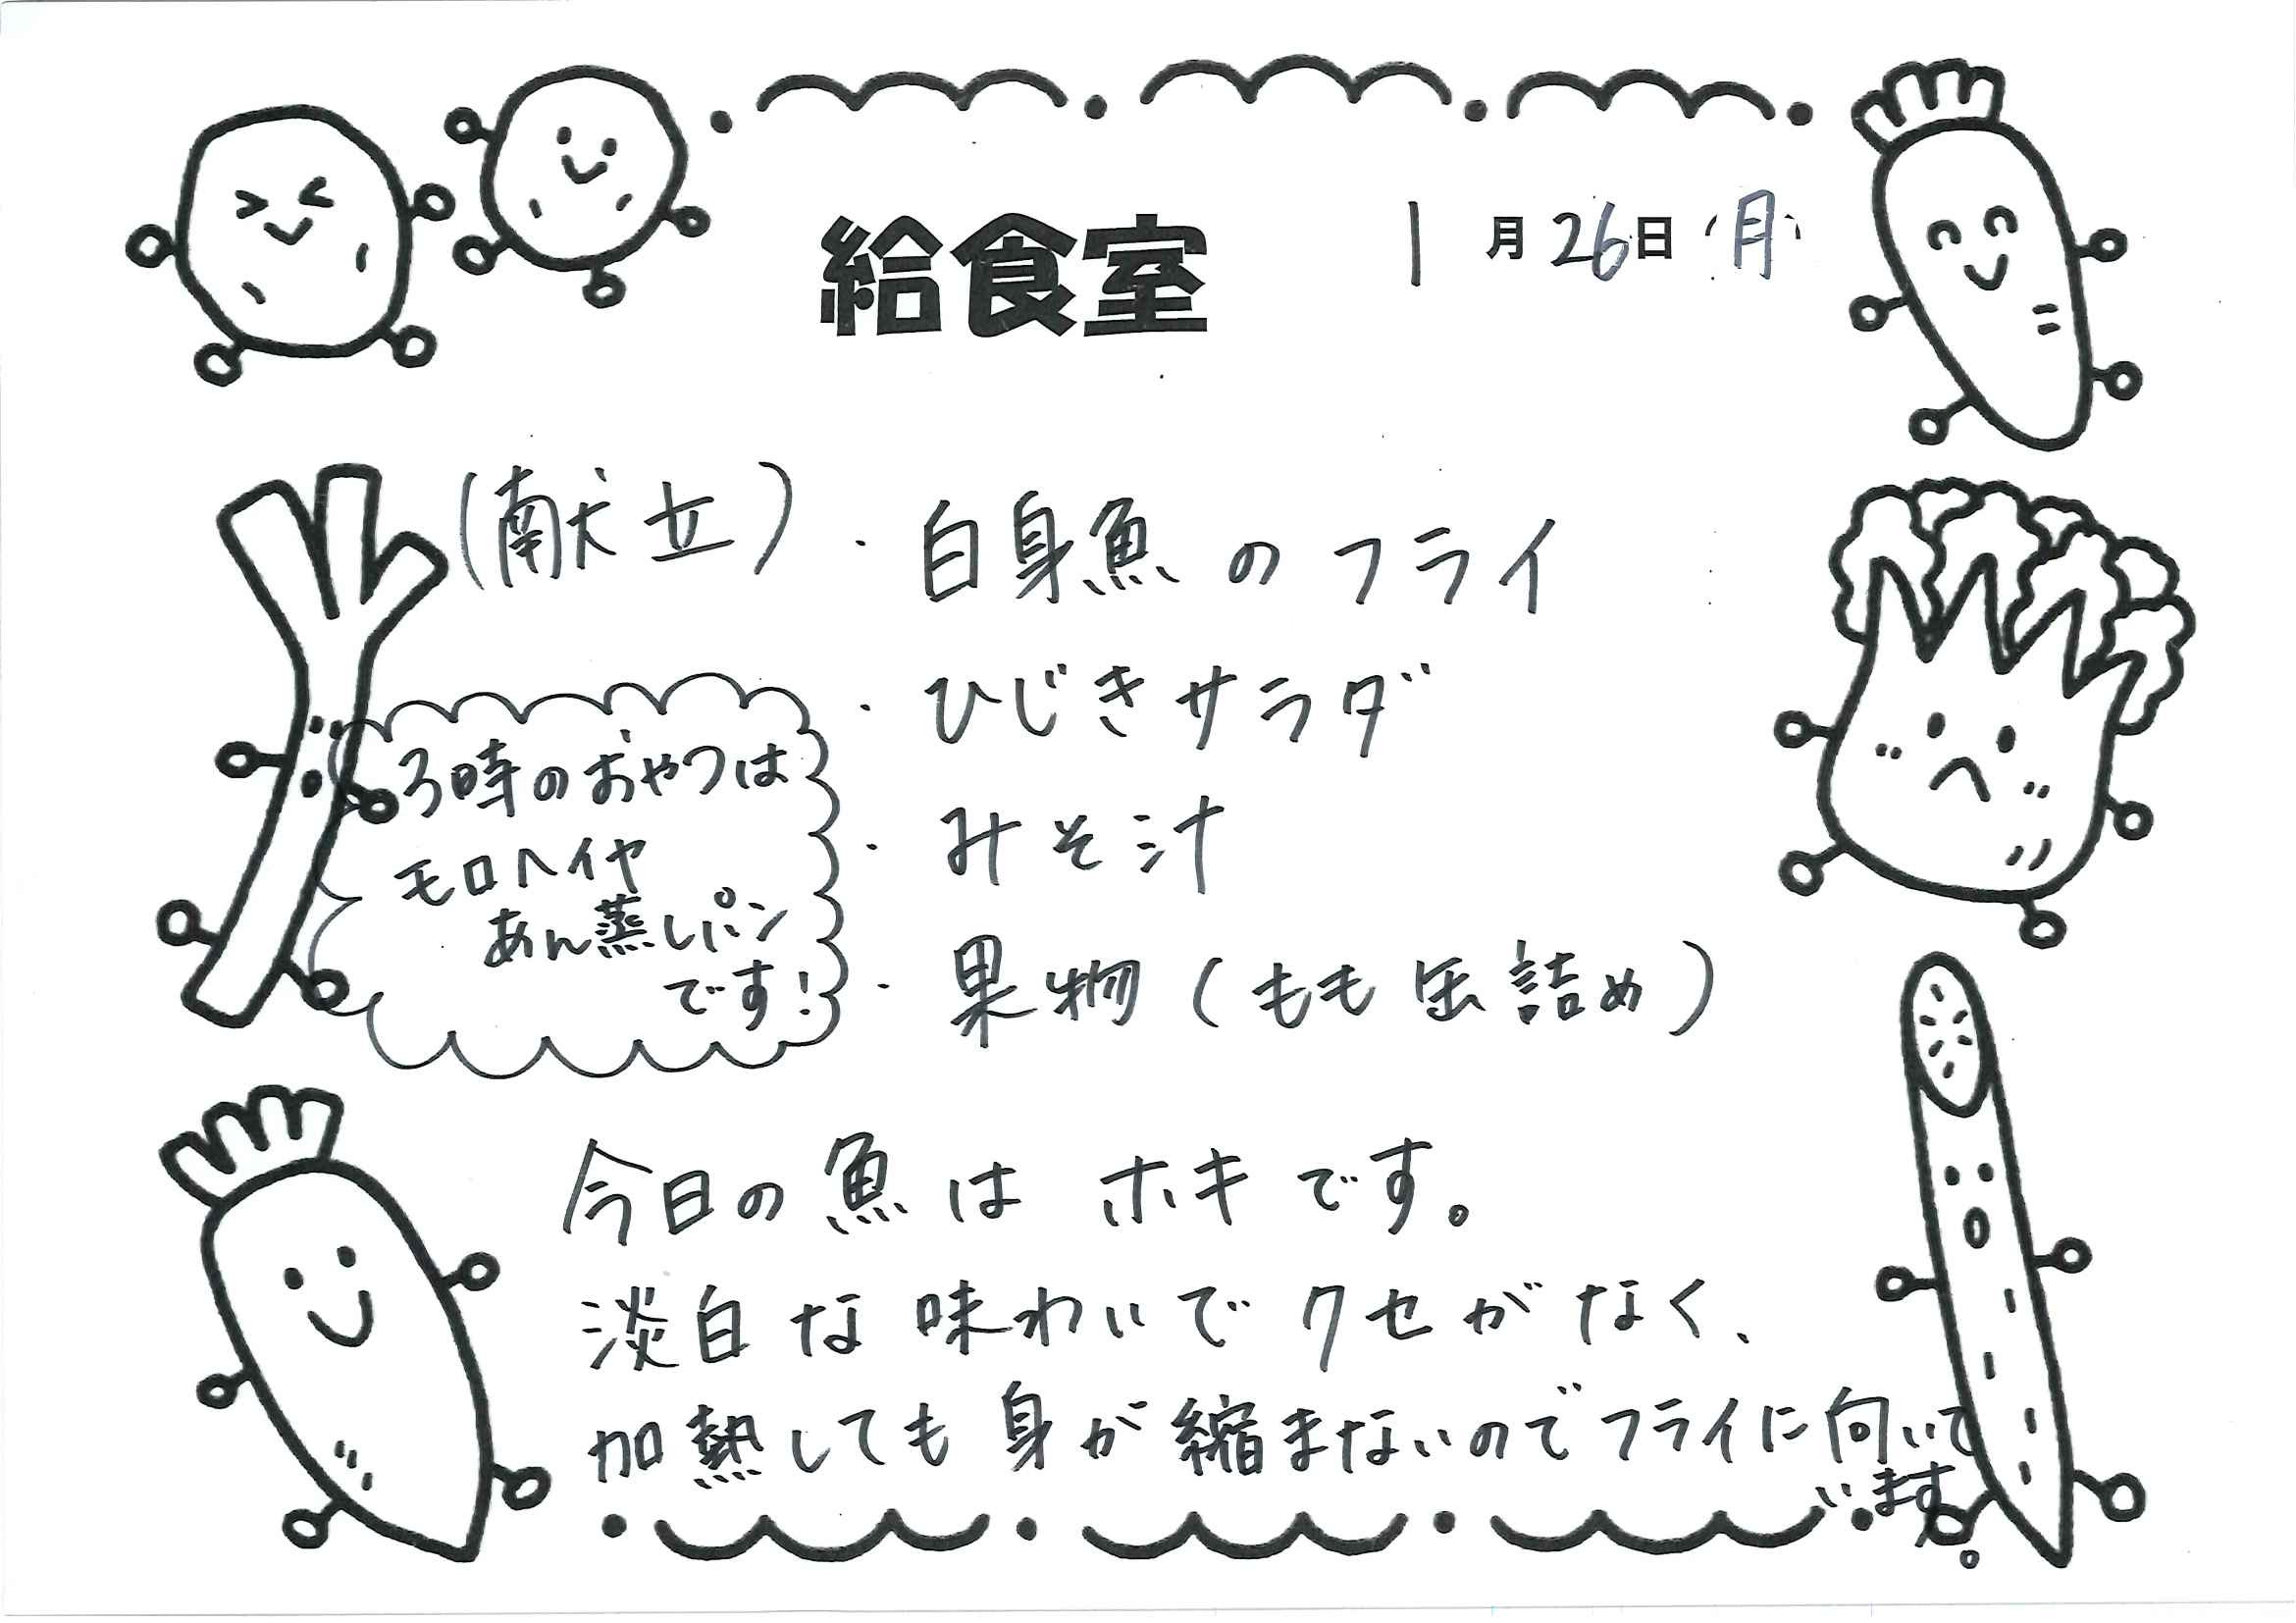 給食室
1月26日(月)
(献立)・白身魚のフライ
・ひじきサラダ
・みそ汁
・果物(もも缶詰め)
3時のおやつは
モロヘイヤ
あん蒸しパン
です!
今日の魚はホキです。
淡白な味わいでクセがなく、
加熱しても身が縮まないのでフライに向いて
います。